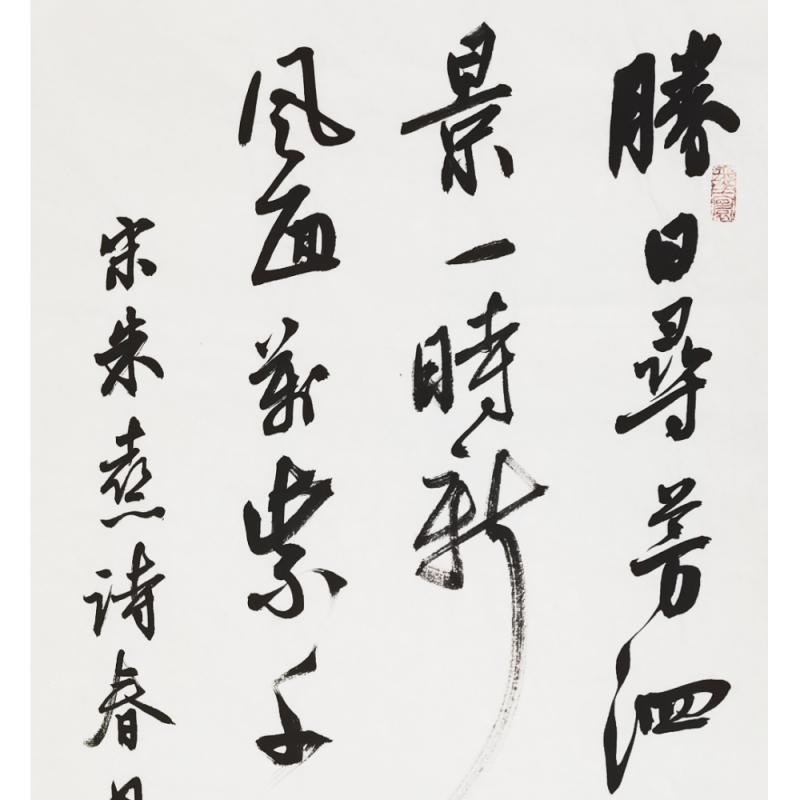 勝日尋芳泗
景一時新
風面萬紫千
宋朱熹诗春